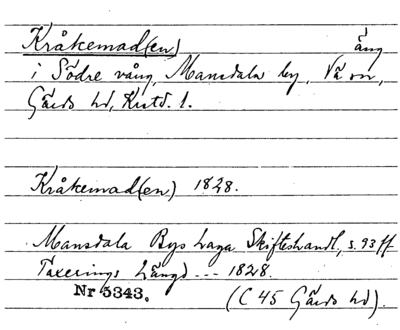 Kråkemad(en) äng
i Södre vång, Mansdala by, Vä sn,
Gärds hd, Kristd. l.
Kråkemad(en) 1828.
Mansdala Bys Laga Skifteshandl, s. 93 ff
Taxerings Längd --- 1828.
Nr 5343. (C 45 Gärds hd).